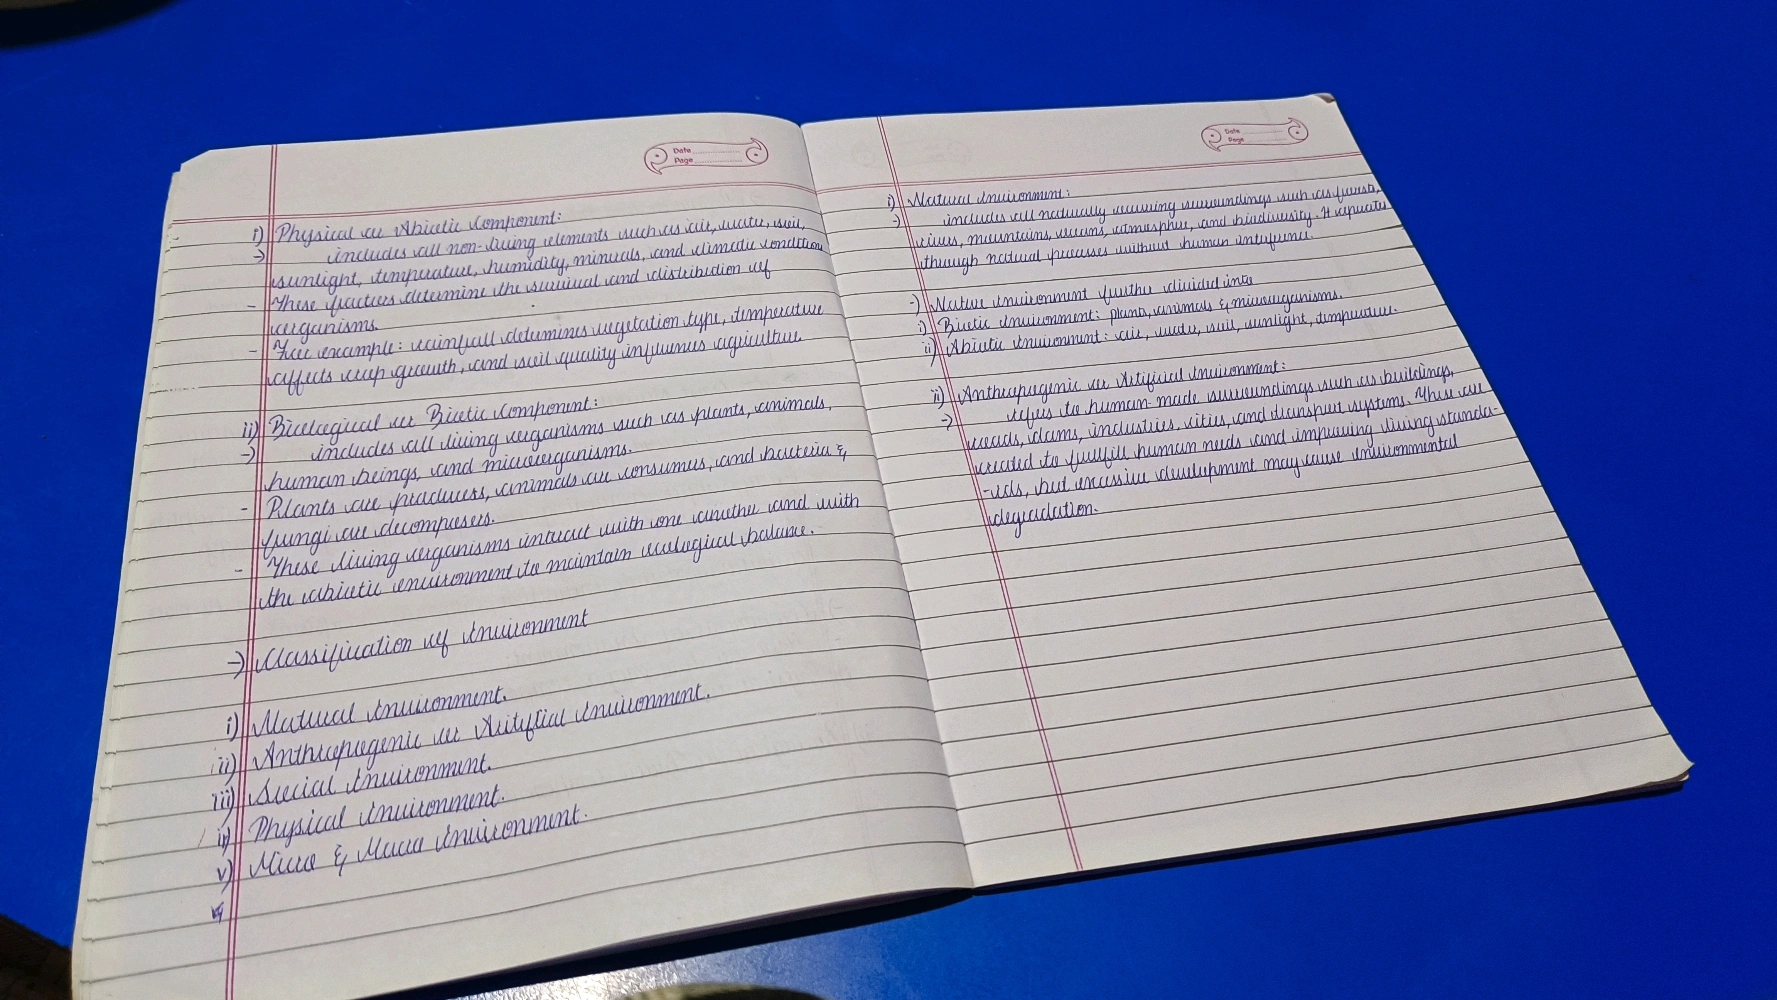 Date
Page
i) Physical or Abiotic Component:
-> includes all non-living elements such as air, water, soil,
sunlight, temperature, humidity, minerals, and climatic condition
- These factors determine the survival and distribution of
organisms.
- For example: rainfall determines vegetation type, temperature
affects crop growth, and soil quality influences agriculture
ii) Biological or Biotic Component:
-> includes all living organisms such as plants, animals,
human beings, and microorganisms.
- Plants are producers, animals are consumers, and bacteria &
fungi are decomposers.
- These living organisms interact with one another and with
the abiotic environment to maintain ecological balance.
-> Classification of Environment
i) Natural Environment.
ii) Anthropogenic or Artificial Environment.
iii) Social Environment.
iv) Physical Environment.
v) Micro & Macro Environment.
Date
Page
i) Natural Environment:
-> includes all naturally occurring surroundings such as forests,
rivers, mountains, oceans, atmosphere, and biodiversity. It operates
through natural processes without human interference.
-> Nature Environment further divided into
i) Biotic Environment: plants, animals & microorganisms.
ii) Abiotic Environment: air, water, soil, sunlight, temperature.
ii) Anthropogenic or Artificial Environment:
-> refers to human-made surroundings such as buildings,
roads, dams, industries, cities, and transport systems. These are
created to fulfill human needs and improving living standa-
-rds, but excessive development may cause environmental
degradation.